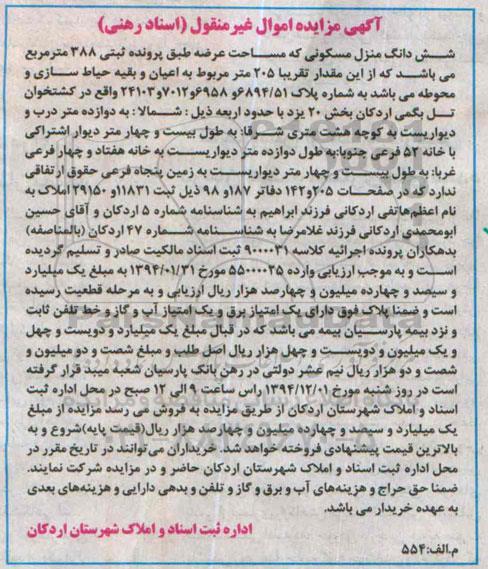 آگهی مزایده اموال غیرمنقول (اسناد رهنی)
شش دانگ منزل مسکونی که مساحت عرصه طبق پرونده ثبتی ۳۸۸ مترمربع
می باشد که از این مقدار تقریبا ۲۰۵ متر مربوط به اعیان و بقیه حیاط سازی و
محوطه می باشد به شماره پلاک ۶۸۹۴/۵۱و ۶۹۵۸و۷۰۱۲و۲۴۱۰۳ واقع در کشتخوان
تل بگمی اردکان بخش ۲۰ یزد با حدود اربعه ذیل : شمالا : به دوازده متر درب و
دیواریست به کوچه هشت متری شرقا: به طول بیست و چهار متر دیوار اشتراکی
با خانه ۵۲ فرعی جنوبا: به طول دوازده متر دیواریست به خانه هفتاد و چهار فرعی
غربا: به طول بیست و چهار متر دیواریست به زمین پنجاه فرعی حقوق ارتفاقی
ندارد که در صفحات ۲۰۵و۱۴۲ دفاتر ۱۸۷و ۹۸ ذیل ثبت ۱۱۸۳۱و ۲۹۱۵۰ املاک به
نام اعظم هاتفی اردکانی فرزند ابراهیم به شناسنامه شماره ۵ اردکان و آقای حسین
ابومحمدی اردکانی فرزند غلامرضا به شناسنامه شماره ۴۷ اردکان (بالمناصفه)
بدهکاران پرونده اجرائیه کلاسه ۹۰۰۰۰۳۱ ثبت اسناد مالکیت صادر و تسلیم گردیده
است و به موجب ارزیابی وارده ۵۵۰۰۰۰۲۵ مورخ ۱۳۹۴/۰۱/۳۱ به مبلغ یک میلیارد
و سیصد و چهارده میلیون و چهارصد هزار ریال ارزیابی و به مرحله قطعیت رسیده
است و ضمنا پلاک فوق دارای یک امتیاز برق و یک امتیاز آب و گاز و خط تلفن ثابت
و نزد بیمه پارسیان بیمه می باشد که در قبال مبلغ یک میلیارد و دویست و چهل
و یک میلیون و دویست و چهل هزار ریال اصل طلب و مبلغ شصت و دو میلیون و
شصت و دو هزار ریال نیم عشر دولتی در رهن بانک پارسیان شعبه میبد قرار گرفته
است در روز شنبه مورخ ۱۳۹۴/۱۲/۰۱ راس ساعت ۹ الی ۱۲ صبح در محل اداره ثبت
اسناد و املاک شهرستان اردکان از طریق مزایده به فروش می رسد مزایده از مبلغ
یک میلیارد و سیصد و چهارده میلیون و چهارصد هزار ریال(قیمت پایه)شروع و به
بالاترین قیمت پیشنهادی فروخته خواهد شد. خریداران می‌توانند در تاریخ مقرر در
محل اداره ثبت اسناد و املاک شهرستان اردکان حاضر و در مزایده شرکت نمایند.
ضمنا حق حراج و هزینه‌های آب و برق و گاز و تلفن و بدهی دارایی و هزینه‌های بعدی
به عهده خریدار می باشد.
اداره ثبت اسناد و املاک شهرستان اردکان
م.الف:۵۵۴